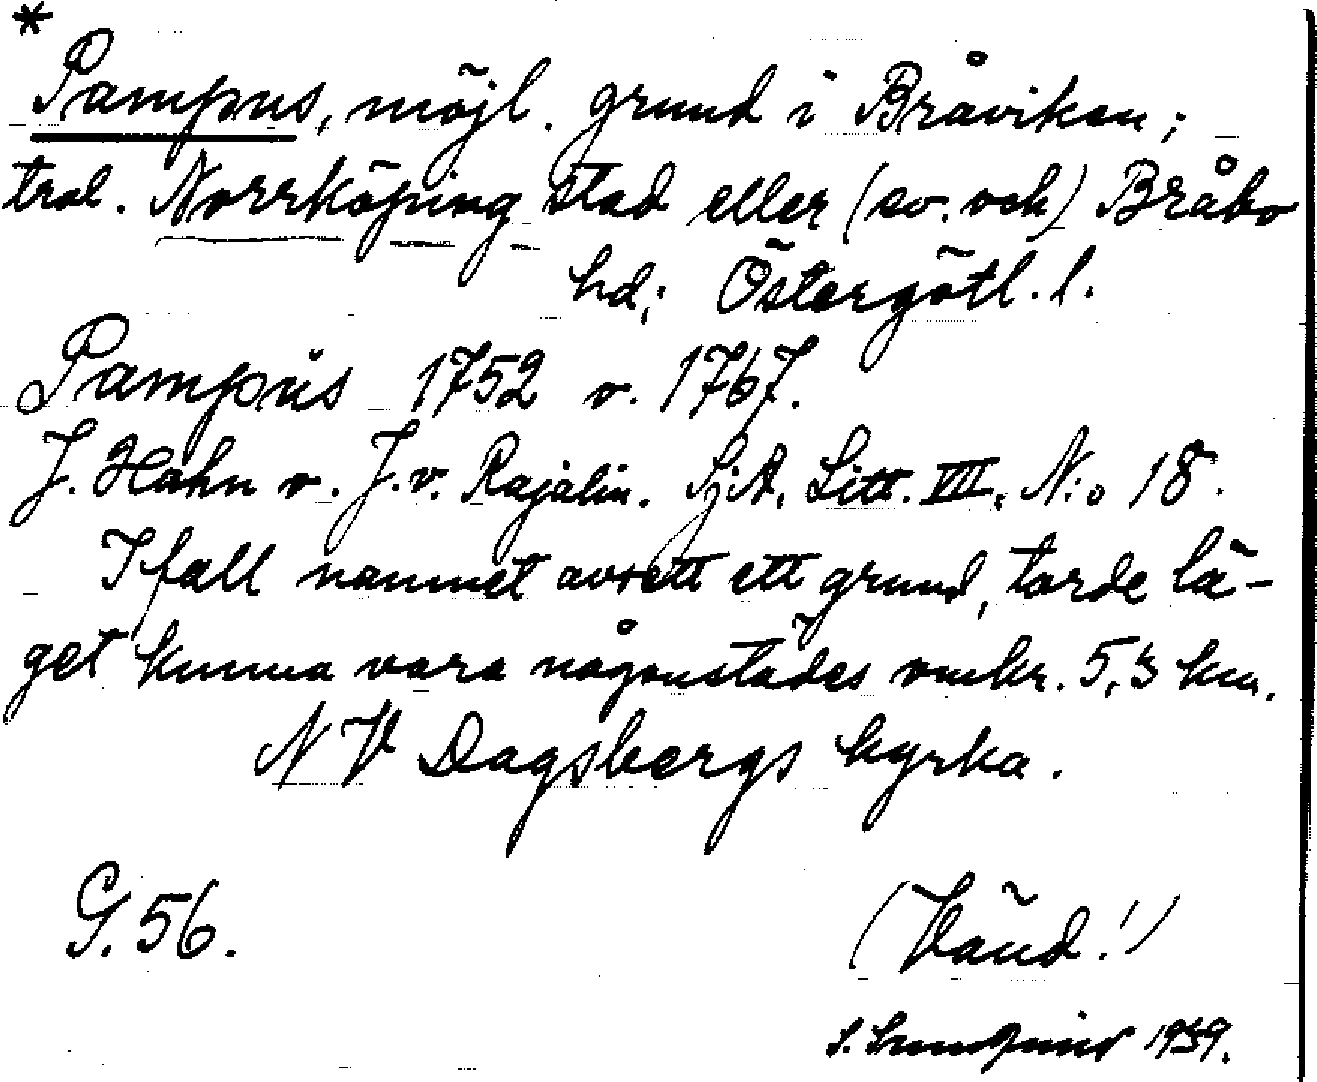 *
Pampus, möjl. grund i Bråviken;
trol. Norrköping stad eller (ev. och) Bråbo
hd; Östergötl. l.
Pampus 1752 o. 1767.
J. Hahn o. J. v. Rajalin. Sj.A. Litt. VII. N:o 18.
Ifall namnet avsett ett grund, torde lä-
get kunna vara någonstädes omkr. 5,5 km.
NV Dagsbergs kyrka.
G. 56.
(Vänd!)
S. 1939.